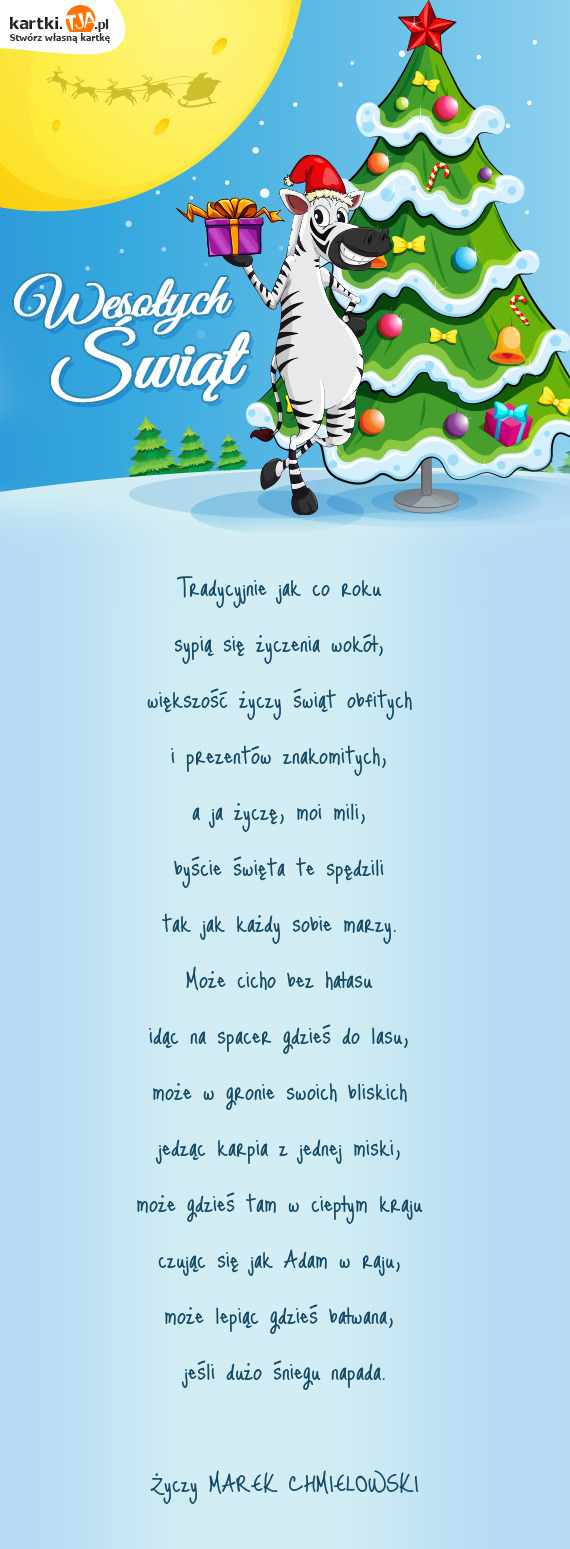 kartki.TJA.pl
Stwórz własną kartkę
Wesołych
Świąt
Tradycyjnie jak co roku
sypią się życzenia wokół,
większość życzy świąt obfitych
i prezentów znakomitych,
a ja życzę, moi mili,
byście święta te spędzili
tak jak każdy sobie marzy.
Może cicho bez hałasu
idąc na spacer gdzieś do lasu,
może w gronie swoich bliskich
jedząc karpia z jednej miski,
może gdzieś tam w ciepłym kraju
czując się jak Adam w raju,
może lepiąc gdzieś bałwana,
jeśli dużo śniegu napada.
Życzy MAREK CHMIELOWSKI